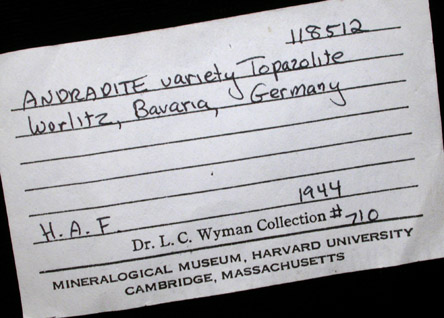 118512
ANDRADITE variety Topazolite
Worlitz, Bavaria, Germany
1944
H. A. F. Dr. L. C. Wyman Collection # 710
MINERALOGICAL MUSEUM, HARVARD UNIVERSITY
CAMBRIDGE, MASSACHUSETTS